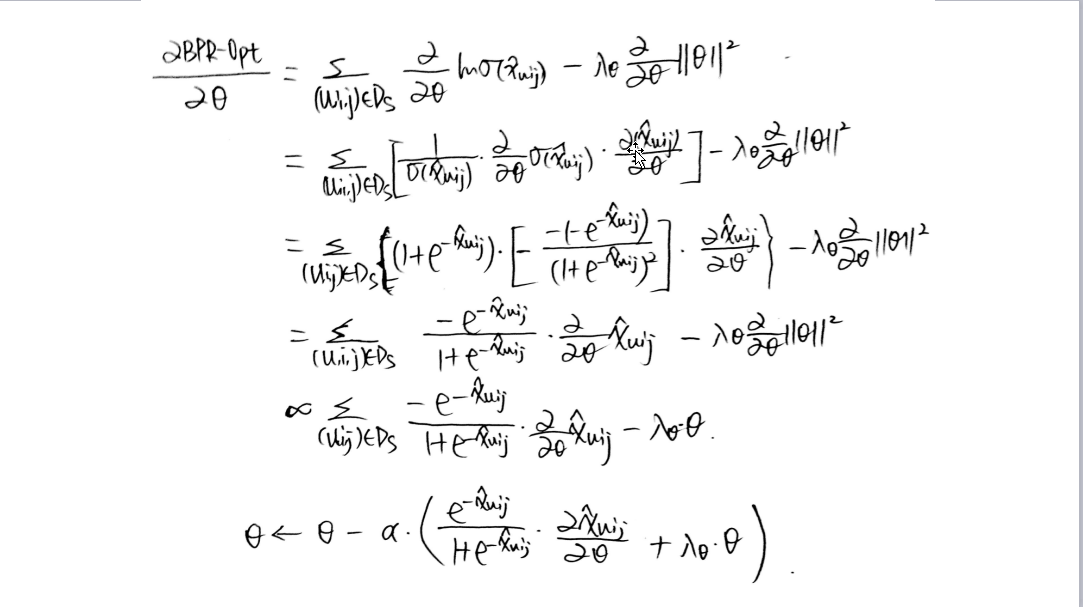 ∂BPR-Opt/∂θ = Σ_{(u,i,j)∈D_S} ∂/∂θ lnσ(x̂_{uij}) − λ_θ ∂/∂θ ||θ||²
= Σ_{(u,i,j)∈D_S} [ 1/σ(x̂_{uij}) · ∂/∂θ σ(x̂_{uij}) · ∂(x̂_{uij})/∂θ ] − λ_θ ∂/∂θ ||θ||²
= Σ_{(u,i,j)∈D_S} { (1+e^{-x̂_{uij}}) · [ − (−1−e^{-x̂_{uij}})/(1+e^{-x̂_{uij}})² ] · ∂x̂_{uij}/∂θ } − λ_θ ∂/∂θ ||θ||²
= Σ_{(u,i,j)∈D_S} −e^{-x̂_{uij}}/(1+e^{-x̂_{uij}}) · ∂/∂θ x̂_{uij} − λ_θ ∂/∂θ ||θ||²
∝ Σ_{(u,i,j)∈D_S} −e^{-x̂_{uij}}/(1+e^{-x̂_{uij}}) · ∂/∂θ x̂_{uij} − λ_θ·θ.
θ ← θ − α·( e^{-x̂_{uij}}/(1+e^{-x̂_{uij}}) · ∂x̂_{uij}/∂θ + λ_θ·θ ).